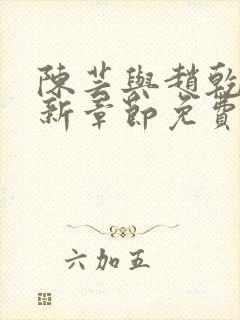 陳芸與趙乾
新章節免費
六加五